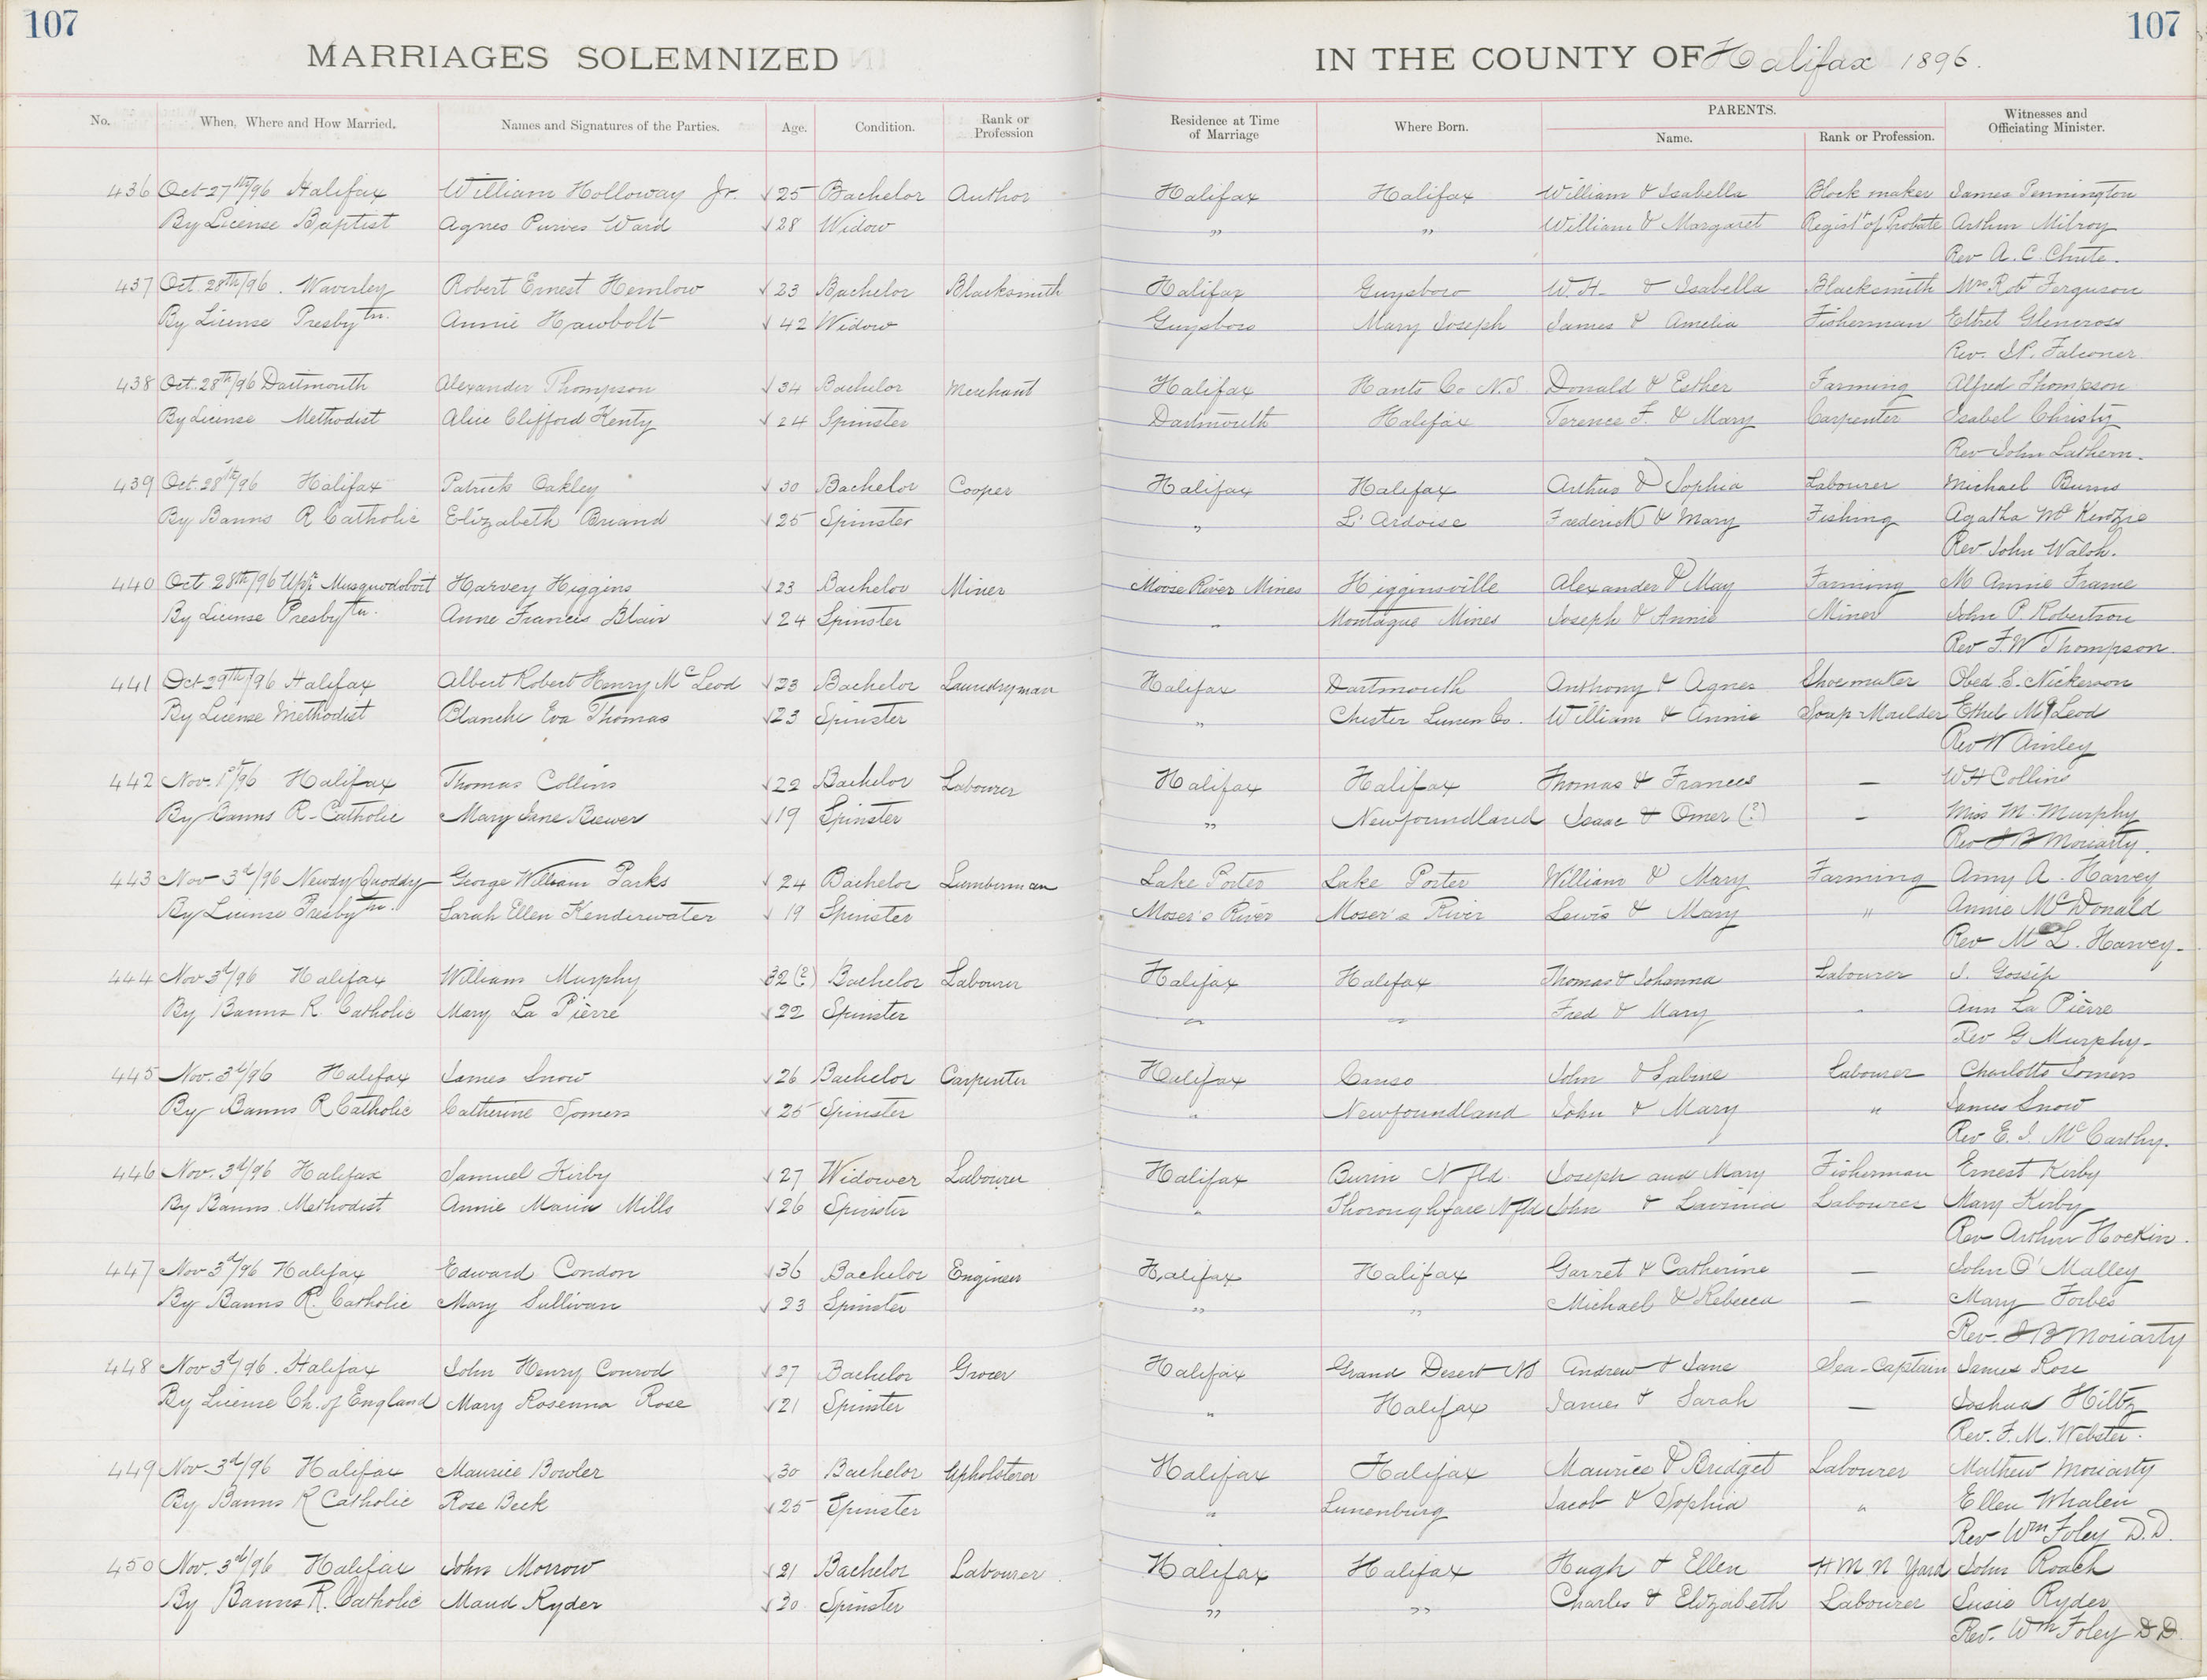 107
107
MARRIAGES SOLEMNIZED IN THE COUNTY OF Halifax 1896.
No. When, Where and How Married. Names and Signatures of the Parties. Age. Condition. Rank or Profession Residence at Time of Marriage Where Born. PARENTS. Name. Rank or Profession. Witnesses and Officiating Minister.
436 Oct 27th/96 Halifax William Holloway Jr. √25 Bachelor Author Halifax Halifax William & Isabella Block maker James Pennington
By License Baptist Agnes Purves Ward √28 Widow " " William & Margaret Regist'r of Probate Arthur Milroy
Rev A. C. Chute.
437 Oct. 28th/96. Waverley Robert Ernest Hemlow √23 Bachelor Blacksmith Halifax Guysboro W.H. & Isabella Blacksmith Mrs Robt Ferguson
By License Presbytn. Annie Hawbolt √42 Widow Guysboro Mary Joseph James & Amelia Fisherman Ethel Glencross
Rev. Falconer
438 Oct. 28th/96 Dartmouth Alexander Thompson √34 Bachelor Merchant Halifax Hants Co N.S Donald & Esther Farming Alfred Thompson
By License Methodist Alice Clifford Kenty √24 Spinster Dartmouth Halifax Terence F. & Mary Carpenter Isabel Christy
Rev John Lathern.
439 Oct. 28th/96 Halifax Patrick Oakley √30 Bachelor Cooper Halifax Halifax Arthur & Sophia Labourer Michael Burns
By Banns R Catholic Elizabeth Briand √25 Spinster " L'Ardoise Frederick & Mary Fishing Agatha McKenzie
Rev John Walsh.
440 Oct 28th/96 Uppr Musquodoboit Harvey Higgins √23 Bachelor Miner Moose River Mines Higginsville Alexander & May Farming M Annie Frame
By License Presbytn. Anne Francis Blair √24 Spinster " Montague Mines Joseph & Annie Miner John P. Robertson
Rev F.W Thompson
441 Oct 29th/96 Halifax Albert Robert Henry McLeod √23 Bachelor Laundryman Halifax Dartmouth Anthony & Agnes Shoemaker Obed. S. Nickerson
By License Methodist Blanche Eva Thomas √23 Spinster " Chester Lunen Co. William & Annie Soap Moulder Ethel McLeod
Rev W Ainley
442 Nov. 1st/96 Halifax Thomas Collins √22 Bachelor Labourer Halifax Halifax Thomas & Frances — W H Collins
By Banns R-Catholic Mary Jane Brewer √19 Spinster " Newfoundland Isaac & Omer (?) — Miss M. Murphy
Rev J B Moriarty.
443 Nov 3d/96 Newdy Quoddy George William Parks √24 Bachelor Lumberman Lake Porter Lake Porter William & Mary Farming Amy A. Harvey
By License Presbytn. Sarah Ellen Kenderwater √19 Spinster Moser's River Moser's River Lewis & Mary " Annie McDonald
Rev L. Harvey.
444 Nov 3d/96 Halifax William Murphy 32(?) Bachelor Labourer Halifax Halifax Thomas & Johanna Labourer J. Gossip
By Banns R. Catholic Mary La Pierre √22 Spinster " " Fred & Mary " Ann La Pierre
Rev G Murphy.
445 Nov. 3d/96 Halifax James Snow √26 Bachelor Carpenter Halifax Canso John & Sabine Labourer Charlotte Somers
By Banns R Catholic Catherine Somers √25 Spinster " Newfoundland John & Mary " James Snow
Rev E. J. McCarthy.
446 Nov. 3d/96 Halifax Samuel Kirby √27 Widower Labourer Halifax Burin Nfld. Joseph and Mary Fisherman Ernest Kirby
By Banns. Methodist Annie Maria Mills √26 Spinster " Thoroughfare Nfld John & Lavinia Labourer Mary Kirby
Rev Arthur Hockin.
447 Nov 3d/96 Halifax Edward Condon √36 Bachelor Engineer Halifax Halifax Garret & Catherine — John O'Malley
By Banns R. Catholic Mary Sullivan √23 Spinster " " Michael & Rebecca — Mary Forbes
Rev. J B Moriarty
448 Nov 3d/96. Halifax John Henry Conrod √27 Bachelor Grocer Halifax Grand Desert NS Andrew & Jane Sea-Captain James Rose
By License Ch. of England Mary Rosenna Rose √21 Spinster " Halifax James & Sarah — Joshua Hiltz
Rev. F. M. Webster.
449 Nov 3d/96 Halifax Maurice Bowler √30 Bachelor Upholsterer Halifax Halifax Maurice & Bridget Labourer Mathew Moriarty
By Banns R Catholic Rose Beck √25 Spinster " Lunenburg Jacob & Sophia " Ellen Whalen
Rev Wm Foley D.D.
450 Nov. 3d/96 Halifax John Morrow √21 Bachelor Labourer Halifax Halifax Hugh & Ellen H M N Yard John Roach
By Banns R. Catholic Maud Ryder √20 Spinster " " Charles & Elizabeth Labourer Susie Ryder
Rev. Wm Foley D D